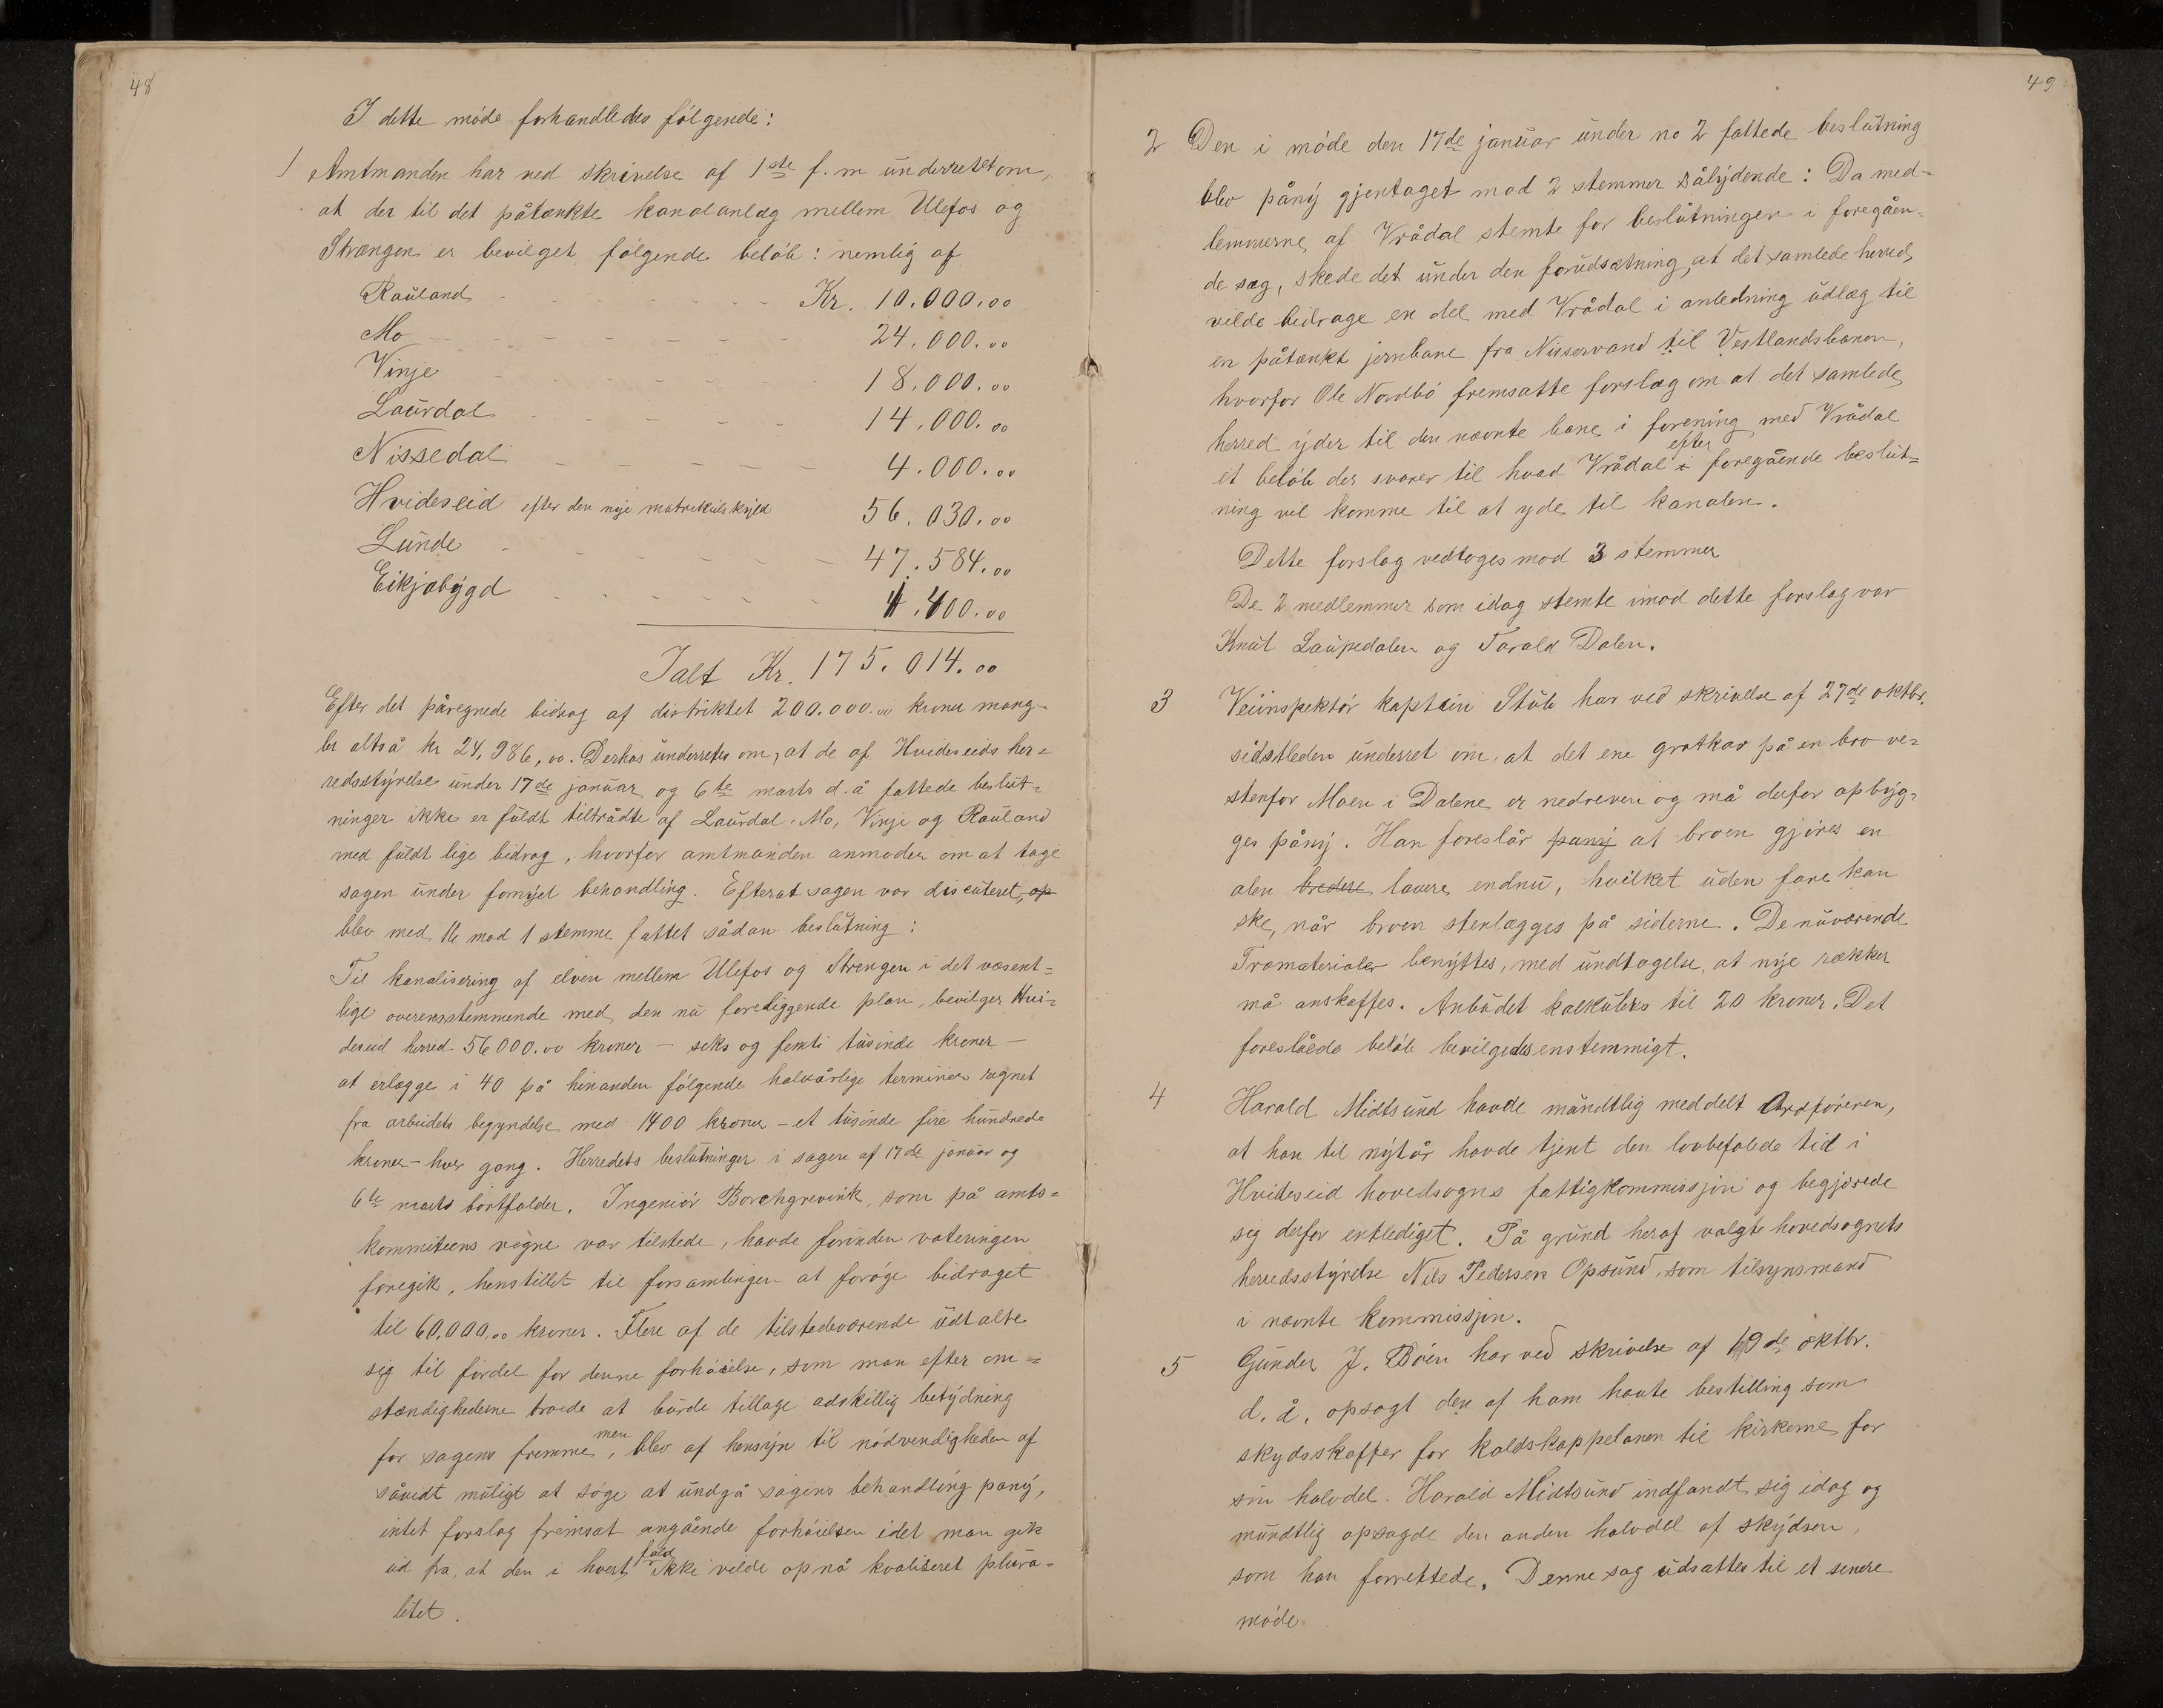 48
I dette møde forhandledes følgende:
1 Amtmanden har ved skrivelse af 1ste f. m underrettet om,
at der til det påtænkte kanalanlæg mellem Ulefos og
Strængen er bevilget følgende beløb: nemlig af
Rauland - - - - - - Kr. 10.000.00
Mo - - - - - - 24.000.00
Vinje - - - - - - 18.000.00
Laurdal - - - - - 14.000.00
Nissedal - - - - - 4.000.00
Hvideseid efter den nye matrikulskyld 56.030.00
Lunde - - - - - - 47.584.00
Eikjabygd - - - - - - 1.400.00
Ialt Kr. 175.014.00
Efter det påregnede bidrag af distriktet 200.000.00 kroner mang-
ler altså kr 24,986,00. Derhos underrettes om, at de af Hvideseids her=
redsstyrelse under 17de januar og 6te marts d. å fattede beslut=
ninger ikke er fuldt tiltrådte af Laurdal. Mo, Vinje og Rauland
med fuldt lige bidrag, hvorfor amtmanden anmoder om at tage
sagen under fornyet behandling. Efterat sagen var discuteret, op
blev med 16 mod 1 stemme fattet sådan beslutning:
Til kanalisering af elven mellem Ulefos og Strengen i det væsent=
lige overensstemmende med den nu foreliggende plan, bevilger Hvi=
deseid herred 56000.00 kroner - seks og femti tusinde kroner -
at erlægge i 40 på hinanden følgende halvårlige terminer regnet
fra arbeidets begyndelse med 1400 kroner - et tusinde fire hundrede
kroner - hver gang. Herredets beslutninger i sagen af 17de januar og
6te marts bortfalder. Ingeniør Borchgrevink, som på amts=
kommiteens vegne var tilstede, havde forinden voteringen
foregik, henstillet til forsamlingen at forøge bidraget
til 60,000,00 kroner. Flere af de tilstedeværende udtalte
sig til fordel for denne forhøielse, som man efter om=
stændighederne troede at burde tillage adskillig betydning
for sagens fremme, men blev af hensyn til nødvendigheden af
såvidt muligt at søge at undgå sagens behandling pany,
intet forslag fremsat angående forhøielsen idet man gik
ud fra, at den i hvert fald ikke vilde opnå kvaliseret plura=
litet.
49
2 Den i møde den 17de januar under no 2 fattede beslutning
blev påny gjentaget mod 2 stemmer sålydende: Da med=
lemmerne af Vrådal stemte for beslutningen i foregåen=
de sag, skede det under den forudsætning, at det samlede herred
vilde bidrage en del med Vrådal i anledning udlæg til
en påtænkt jernbane fra Nisservand til Vestlandsbanen,
hvorfor Ole Nordbø fremsatte forslag om at det samlede
herred yder til den nævnte bane i forening med Vrådal
et beløb der svarer til hvad Vrådal i efter foregående beslut=
ning vil komme til at yde til kanalen.
Dette forslag vedtoges mod 3 stemmer
De 2 medlemmer som idag stemte imod dette forslag var
Knut Laupedalen og Tarald Dalen.
3 Veiinspektør kaptein Stub har ved skrivelse af 27de oktbr.
sidstleden underret om, at det ene grotkar på en bro ve=
stenfor Moen i Dalene er nedreven og må derfor opbyg=
ges påny. Han foreslår pany at broen gjøres en
alen bredere lavere endnu, hvilket uden fare kan
ske, når broen stenlægges på siderne. De nuværende
Træmaterialer benyttes, med undtagelse, at nye rækker
må anskaffes. Anbudet kalkuleres til 20 kroner. Det
foreslåede beløb bevilgedes enstemmigt.
4 Harald Midtsund havde mundtlig meddelt Ordføreren,
at han til nytår havde tjent den lovbefalede tid i
Hvideseid hovedsogns fattigkommissjon og begjærede
sig derfor entlediget. På grund heraf valgte hovedsognets
herredsstyrelse Nils Pedersen Opsund, som tilsynsmand
i nævnte kommissjon.
5 Gunder J. Bøen har ved skrivelse af 19de oktbr.
d. å. opsagt den af ham havte bestilling som
skydsskaffer for kaldskappelanen til kirkerne for
sin halvdel. Harald Midtsund indfandt sig idag og
mundtlig opsagde den anden halvdel af skydsen,
som han forrettede. Denne sag udsattes til et senere
møde